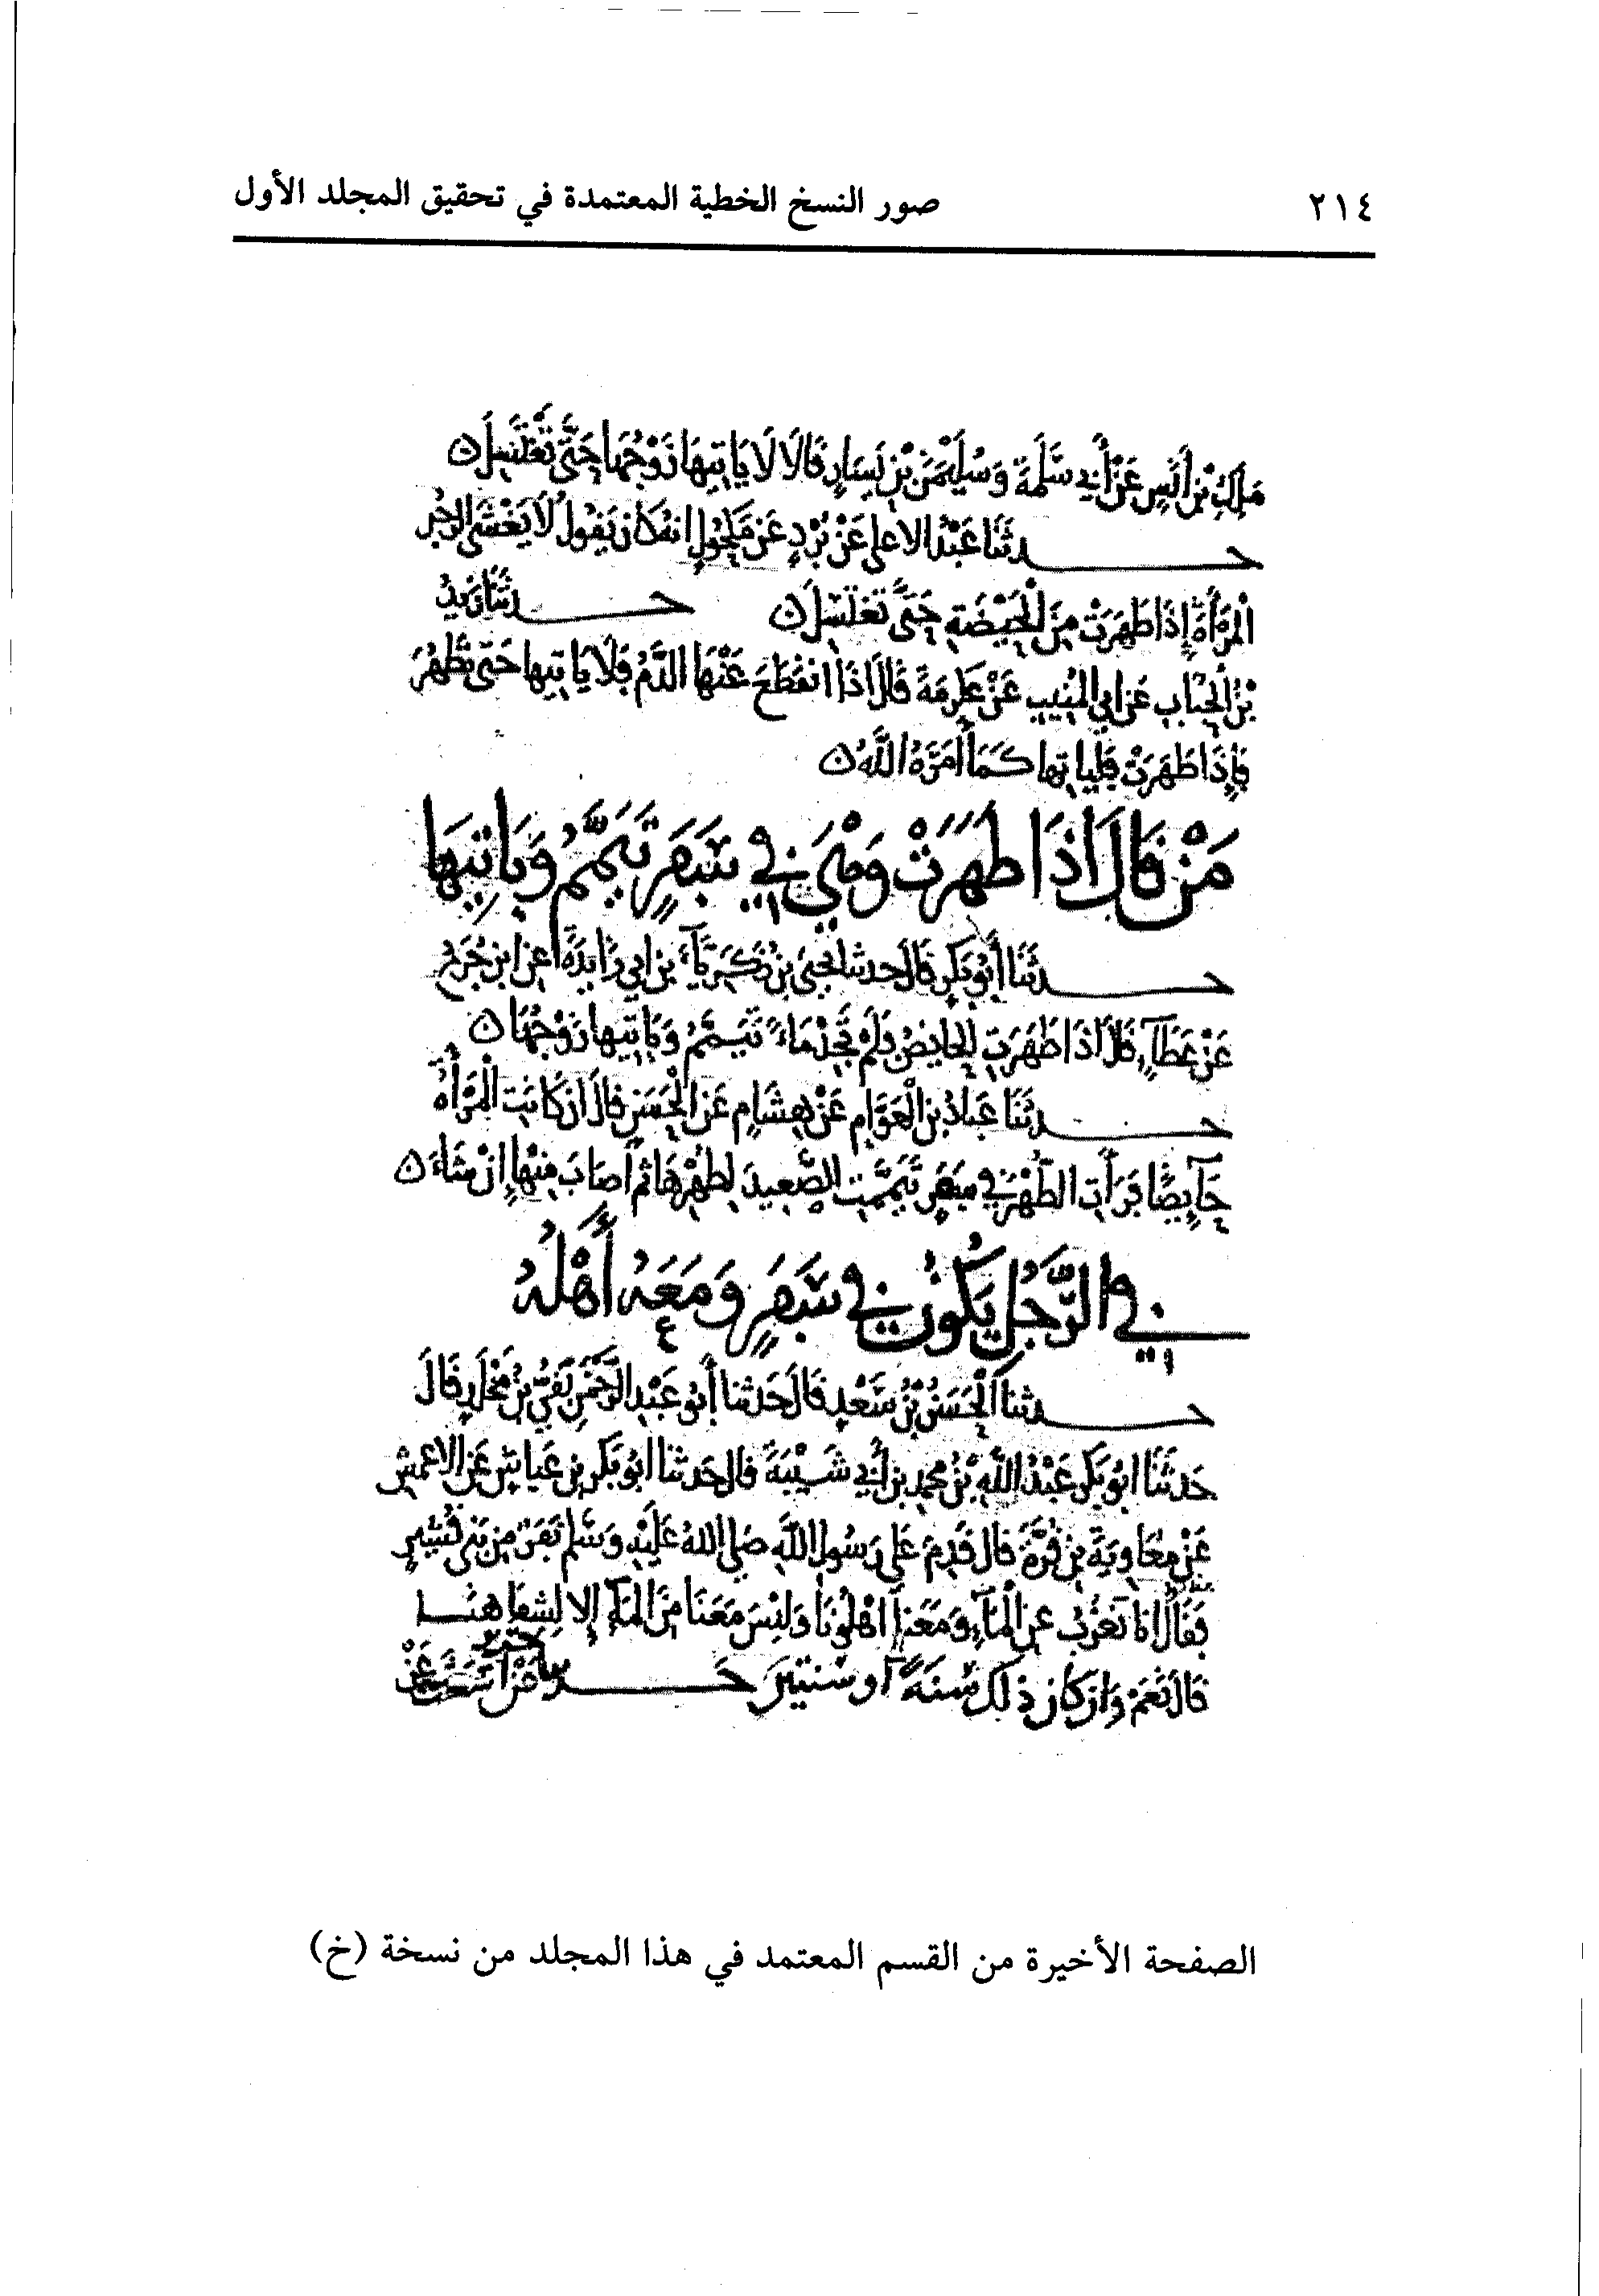 ٢١٤ صور النسخ الخطية المعتمدة في تحقيق المجلد الأول
مَلِك بن أنَس عَنْ أبي سَلَمَةَ وَسُلَيْمَنَ بْنِ يَسَارٍ قَالَا لَا يَاتِيهَا زَوْجُهَا حَتَّى تَغْتَسِلَ ن
حـدثَنَا عَبْدُ الاعلى عَنْ بُرْدٍ عَن مَكْحُولٍ انهُ كَان يَقُولُ لَا يَغْشَى الرجُل
الْمَرْأةَ إِذَا طَهَرَتْ مِنَ الْحَيْضَةِ حَتَّى تَغتَسِلَ ن حـدثَنَا زَيدُ
بْنُ الْحُبَابِ عَن ابي الْمُنِيبِ عَنْ عِكرِمَةَ قَالَ اذَا انقَطَعَ عَنْهَا الدَّمُ فَلَا يَاتيها حَتى تَطْهُرَ
فَإِذَا طَهَرَتْ فليَاتِها كَمَا أمَرَهُ اللَّهُ ن
مَنْ قَالَ اذَا طَهَرَتْ وَهْيَ فِي سَفَرٍ تَيَمَّمُ وَيَاتِيهَا
حـدثَنَا أبُو بَكر قَالَ حدثنا يحيَى بن زَكَرِيَّاءَ بن ابي زَايدَةَ عن ابن جُرَيج
عَنْ عَطَاءٍ قَالَ اذَا طَهَرَتِ الحَايِضُ فَلَمْ تَجِدْ مَاءً تَيَمَّمُ وَيَاتيها زَوْجُهَا ن
حـدثَنَا عَبادُ بن الْعَوَّامِ عَنْ هِشَامٍ عَن الْحَسَنِ قَالَ ان كَانَتِ الْمَرْأةُ
حَايِضًا فَرَأتِ الطُّهْرَ فِي سَفَرٍ تَيَمَّمَتِ الصَّعِيدَ لِطُهْرِهَا ثم أصَابَ مِنْهَا إِنْ شَاءَ ن
فِي الرَّجُلِ يَكُونُ فِي سَفَرٍ وَمَعَهُ أَهْلُهُ
حـدثنَا الْحَسَنُ بْنُ سَعْدٍ قَالَ حَدثنا أبُو عَبْدِ الرَّحْمَنِ بَقِيُّ بْنُ مَخْلَدٍ قَالَ
حَدثَنَا ابُو بَكر عَبْدُ اللَّهِ بْنُ محمدِ بن أبي شَيْبَةَ قال حَدثنا ابُو بَكرِ بن عَياشٍ عَن الاعْمَشِ
عَنْ مُعَاوِيَةَ بن قُرَّةَ قَالَ قَدِمَ عَلى رَسُولِ اللَّهِ صَلى اللهُ عَلَيْهِ وَسَلم نَفَرٌ مِن بَنِي قُشَيْرٍ
فَقَالُوا انا نَعْزُبُ عن الْمَاءِ وَمَعَنَا أَهْلُونَا وَلَيْسَ مَعَنَا مِنَ الْمَاءِ إلا لِشِفَاهِنَا
قَالَ نَعَمْ وَان كَانَ ذَلِكَ سَنَةً أو سَنَتَيْنِ حـدثنا عَنْ
الصفحة الأخيرة من القسم المعتمد في هذا المجلد من نسخة (خ)